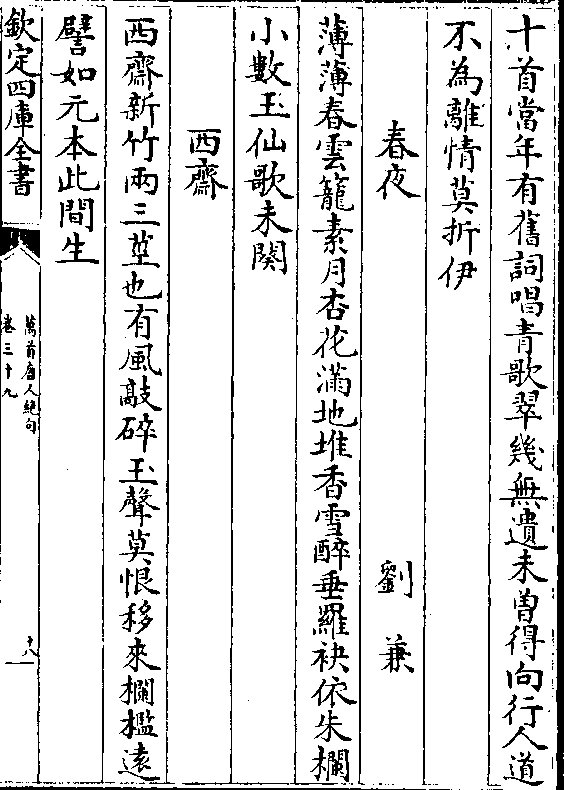 十首當年有舊詞唱青歌翠幾無遺未曽得向行人道
不為離情莫折伊
春夜　劉兼
薄薄春雲籠素月杏花滿地堆香雪醉垂羅袂依朱欄
小數玉仙歌未闋
西齋
西齋新竹兩三莖也有風敲碎玉聲莫恨移來欄檻遠
譬如元本此間生
欽定四庫全書
萬首唐人絶句
卷三十九
十八